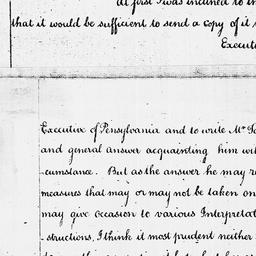 at first I was inclined to
that it would be sufficient to send a copy of it
Execut
Executive of Pensylvania and to write Mr
and general answer acquainting him wi
cumstance. But as the answer he may
measures that may or may not be taken on
may give occasion to various Interpretat
structions, I think it most prudent neither